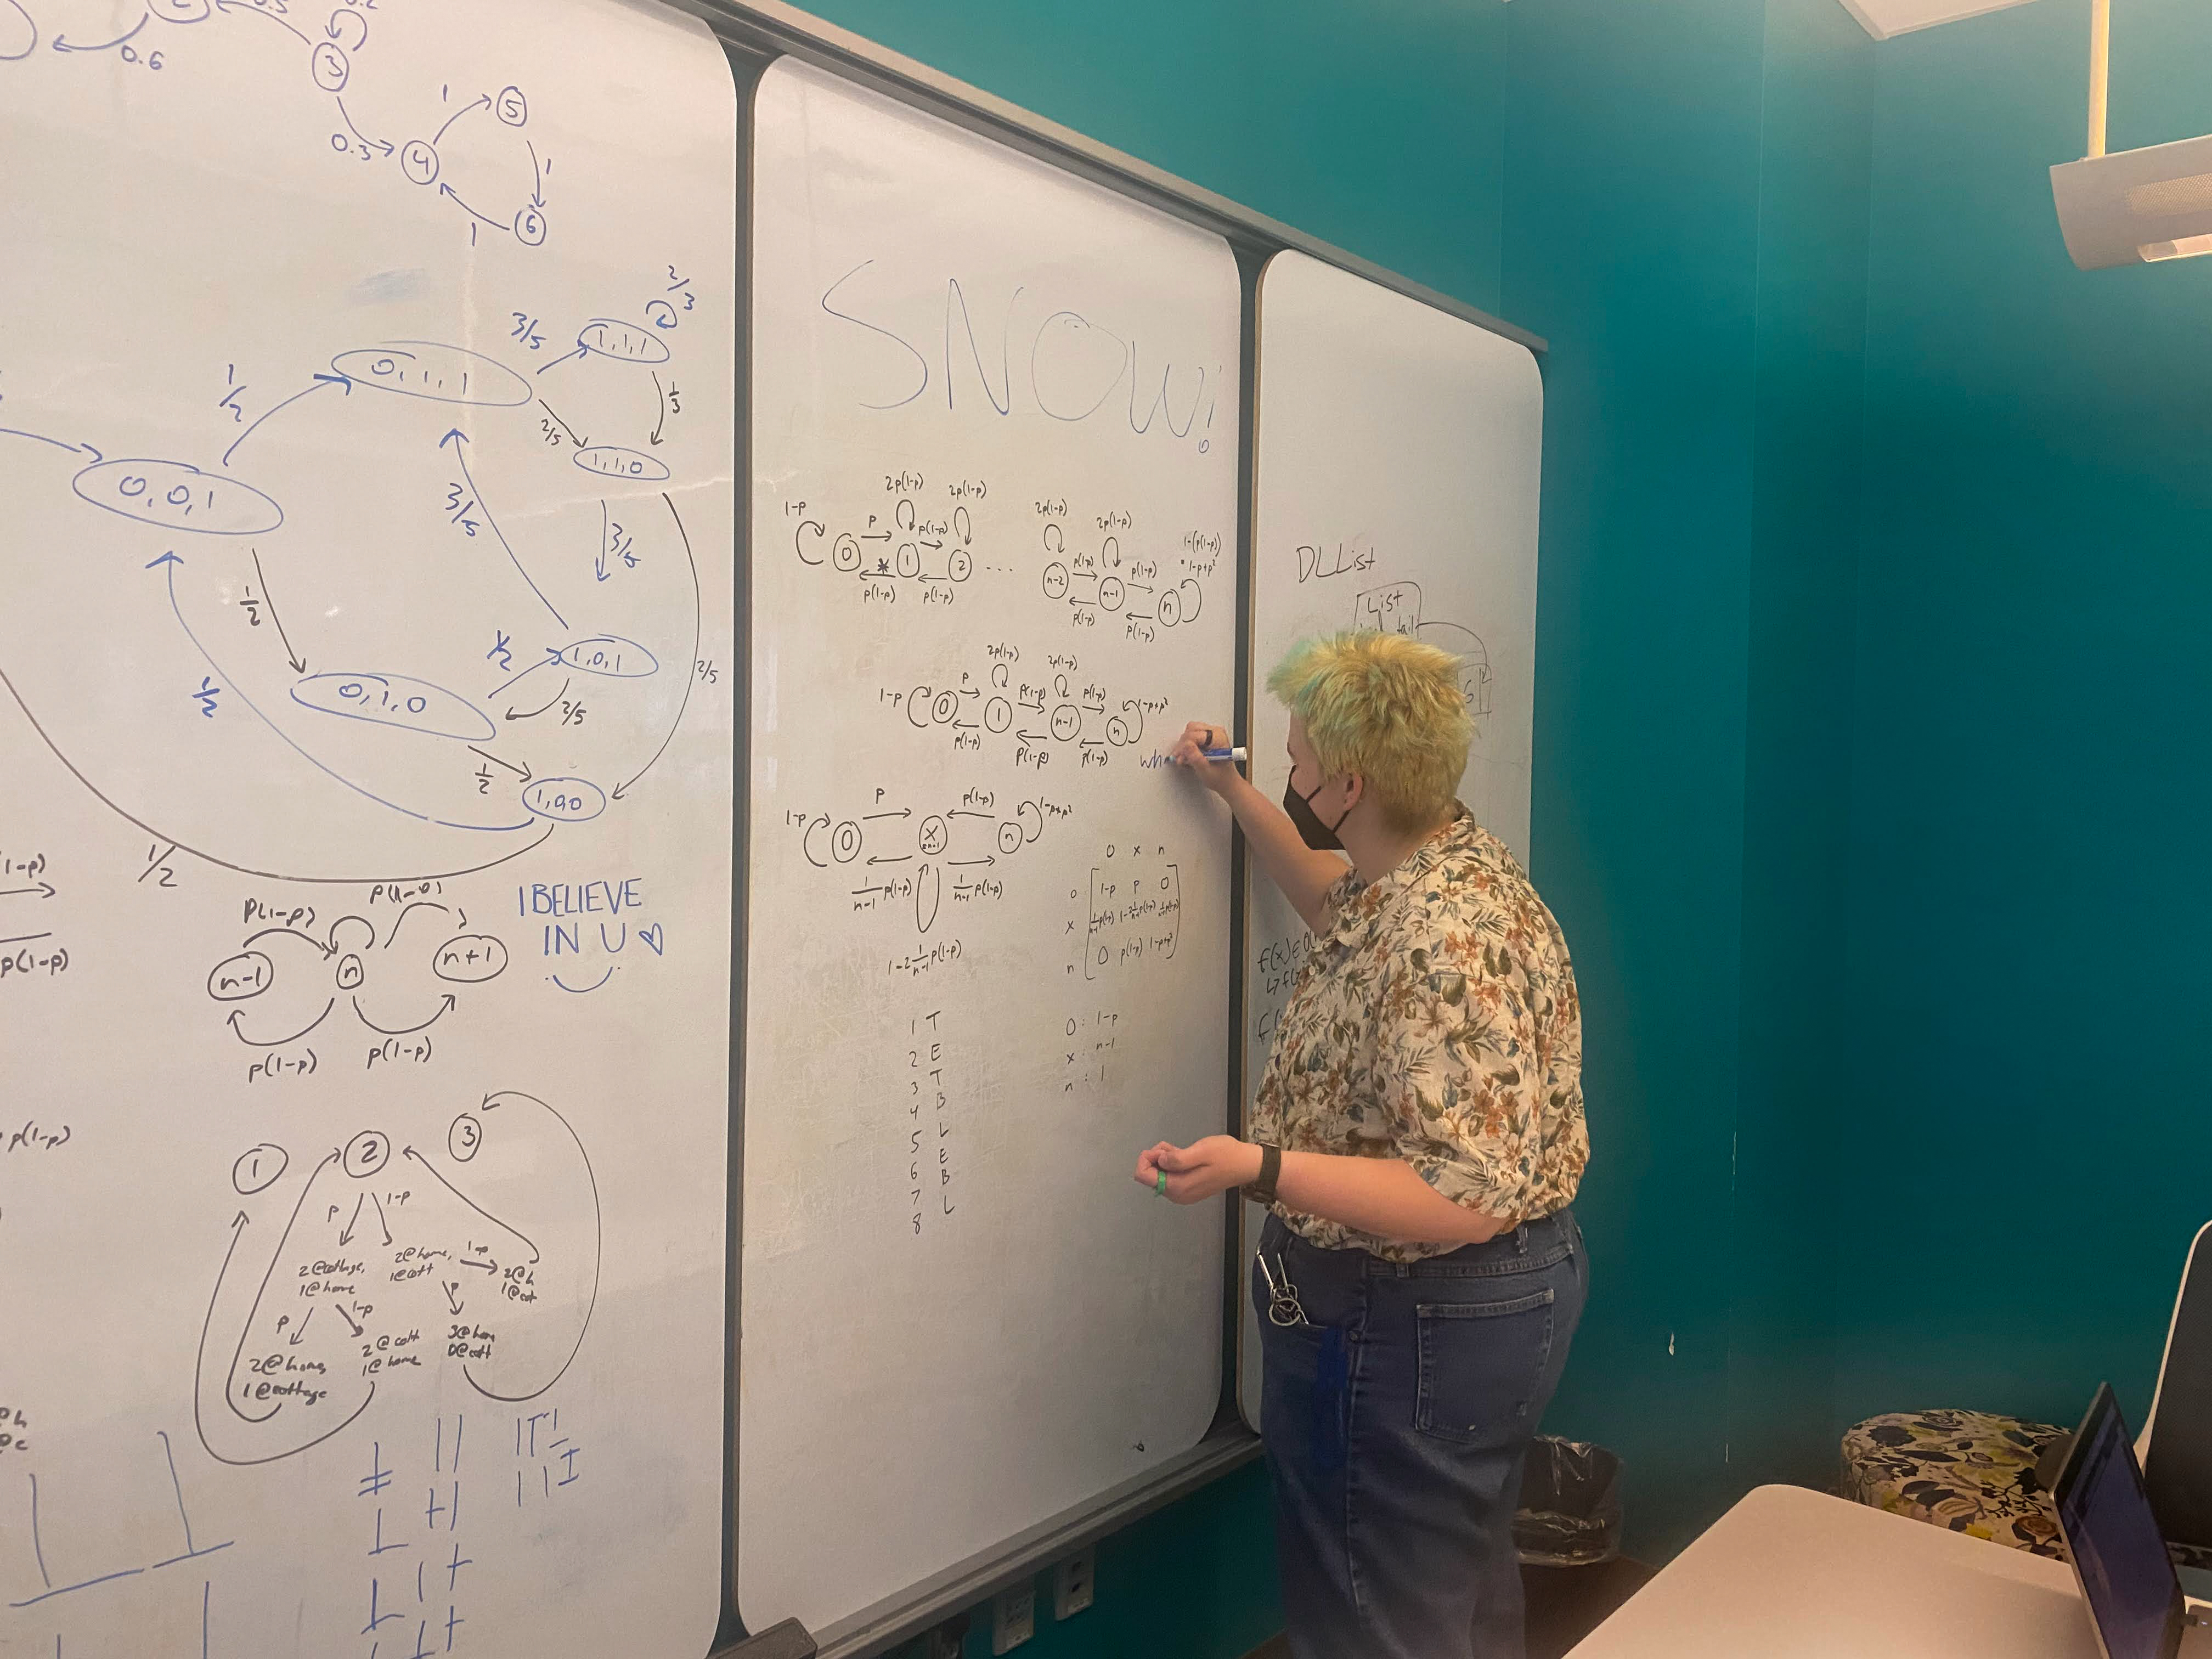 0.5
0.2
0.6
3
0.3
4
1
5
1
6
1
2/3
3/5
1,1,1
0,1,1
1/2
1/3
2/5
1,1,0
0,0,1
3/5
3/5
1/2
1/2
1,0,1
2/5
0,1,0
2/5
1/2
1/2
1,0,0
1/2
p(1-p)
p(1-p)
n-1
n
n+1
p(1-p)
p(1-p)
I BELIEVE
IN U ♡
p(1-p)
p(1-p)
1
2
3
p
1-p
2@cottage,
1@home
2@home,
1@cott
1-p
2@h
1@cot
p
1-p
p
2@home,
1@cottage
2@cott
1@home
3@hom
0@cott
SNOW!
2p(1-p) 2p(1-p)
1-p p p(1-p)
0 1 2 ...
* p(1-p) p(1-p)
2p(1-p) 2p(1-p)
1-(p(1-p))
1-p+p²
n-2 p(1-p) n-1 p(1-p) n
p(1-p) p(1-p)
2p(1-p) 2p(1-p)
1-p 0 p 1 p(1-p) n-1 p(1-p) n 1-p+p²
p(1-p) p(1-p) p(1-p)
wh
p p(1-p) 1-p+p²
1-p 0 x n
1/n-1 p(1-p) 1/n-1 p(1-p)
1-2 1/n-1 p(1-p)
0 x n
0 1-p p 0
x 1/n-1 p(1-p) 1-2 1/n-1 p(1-p) 1/n-1 p(1-p)
n 0 p(1-p) 1-p+p²
1 T
2 E
3 T
4 B
5 L
6 E
7 B
8 L
0: 1-p
x: n-1
n: 1
DLList
List
tail